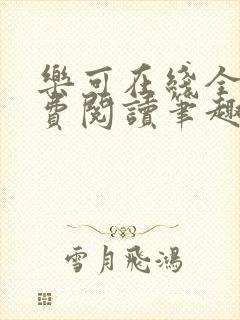 樂可在綫全
費閱讀筆趣
雪月飛鴻